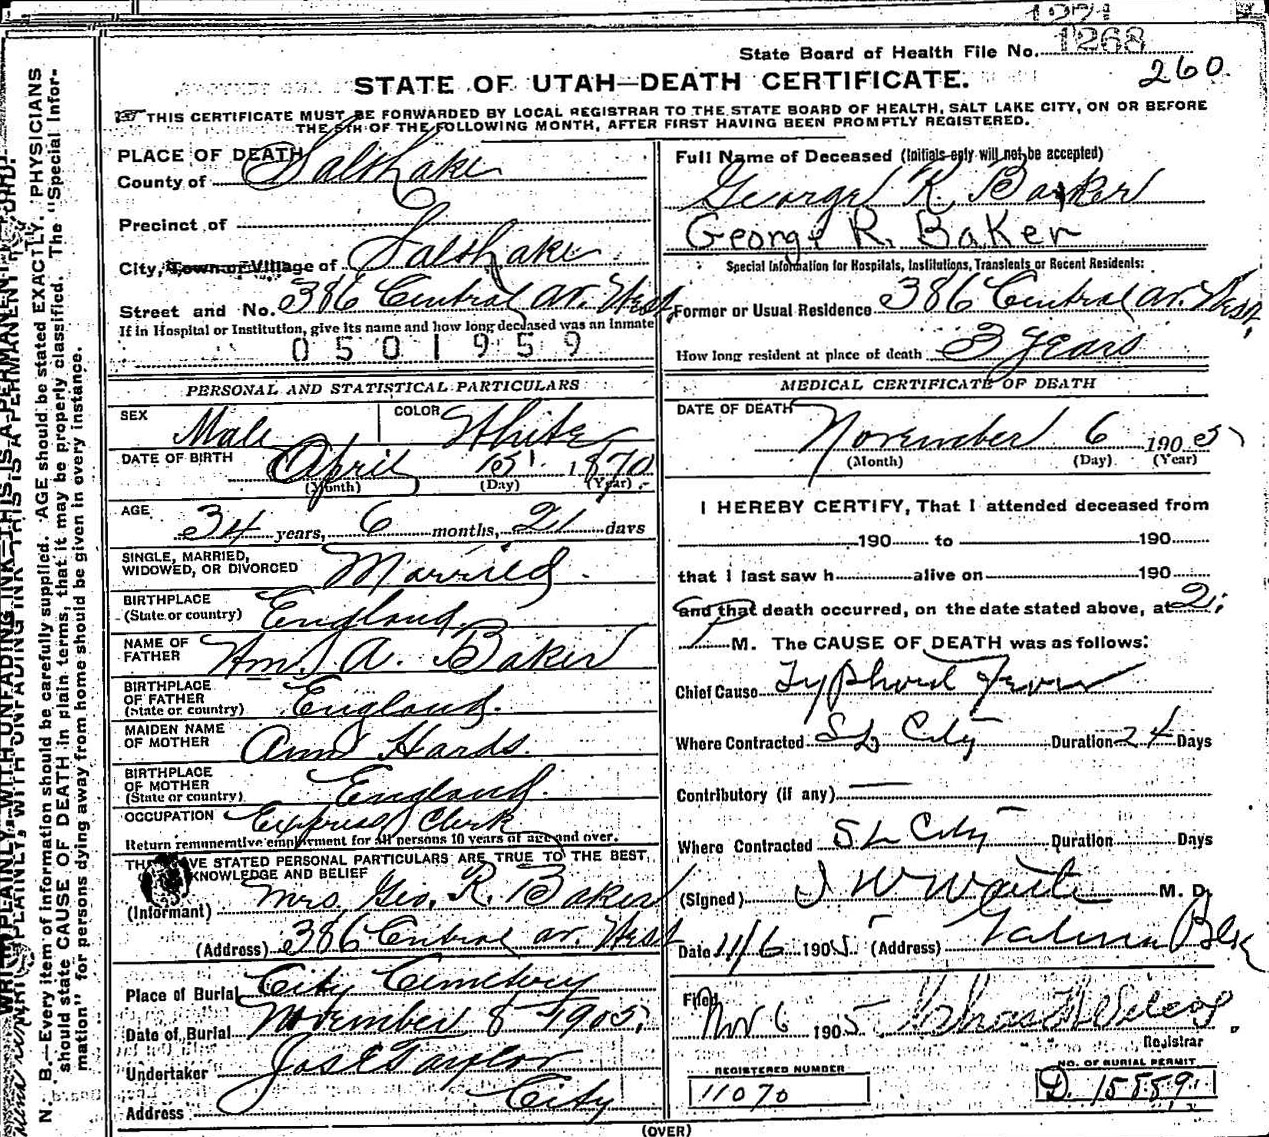 State Board of Health File No. 1268
260
STATE OF UTAH—DEATH CERTIFICATE.
THIS CERTIFICATE MUST BE FORWARDED BY LOCAL REGISTRAR TO THE STATE BOARD OF HEALTH, SALT LAKE CITY, ON OR BEFORE
THE 5TH OF THE FOLLOWING MONTH, AFTER FIRST HAVING BEEN PROMPTLY REGISTERED.
PLACE OF DEATH
County of Salt Lake
Precinct of
City, Town or Village of Salt Lake
Street and No. 386 Central av. West
If in Hospital or Institution, give its name and how long deceased was an Inmate
0501959
Full Name of Deceased (Initials only will not be accepted)
George R. Baker
George R. Baker
Special Information for Hospitals, Institutions, Transients or Recent Residents:
Former or Usual Residence 386 Central av. West,
How long resident at place of death 3 years
PERSONAL AND STATISTICAL PARTICULARS
SEX Male COLOR White
DATE OF BIRTH April 15 1870
(Month) (Day) (Year)
AGE 34 years, 6 months, 21 days
SINGLE, MARRIED,
WIDOWED, OR DIVORCED Married
BIRTHPLACE
(State or country) England
NAME OF
FATHER Wm. A. Baker
BIRTHPLACE
OF FATHER
(State or country) England.
MAIDEN NAME
OF MOTHER Ann Hards.
BIRTHPLACE
OF MOTHER
(State or country) England.
OCCUPATION Express Clerk
Return remunerative employment for all persons 10 years of age and over.
THE ABOVE STATED PERSONAL PARTICULARS ARE TRUE TO THE BEST
KNOWLEDGE AND BELIEF
(Informant) Mrs. Geo. R. Baker
(Address) 386 Central av. West
Place of Burial City Cemetery
Date of Burial November 8 1905
Undertaker Jos E Taylor
Address City
MEDICAL CERTIFICATE OF DEATH
DATE OF DEATH November 6 1905
(Month) (Day) (Year)
I HEREBY CERTIFY, That I attended deceased from
190 to 190
that I last saw h alive on 190
and that death occurred, on the date stated above, at 2
P M. The CAUSE OF DEATH was as follows:
Chief Cause Typhoid Fever
Where Contracted S L City Duration 24 Days
Contributory (if any) —
Where Contracted S L City Duration Days
(Signed) M. D.
Date 11/6 1905 (Address)
Filed
Nov 6 1905
Registrar
REGISTERED NUMBER
11070
NO. OF BURIAL PERMIT
D. 15889
(OVER)
N. B.—Every item of information should be carefully supplied. AGE should be stated EXACTLY. PHYSICIANS
should state CAUSE OF DEATH in plain terms, that it may be properly classified. The "Special Infor-
mation" for persons dying away from home should be given in every instance.